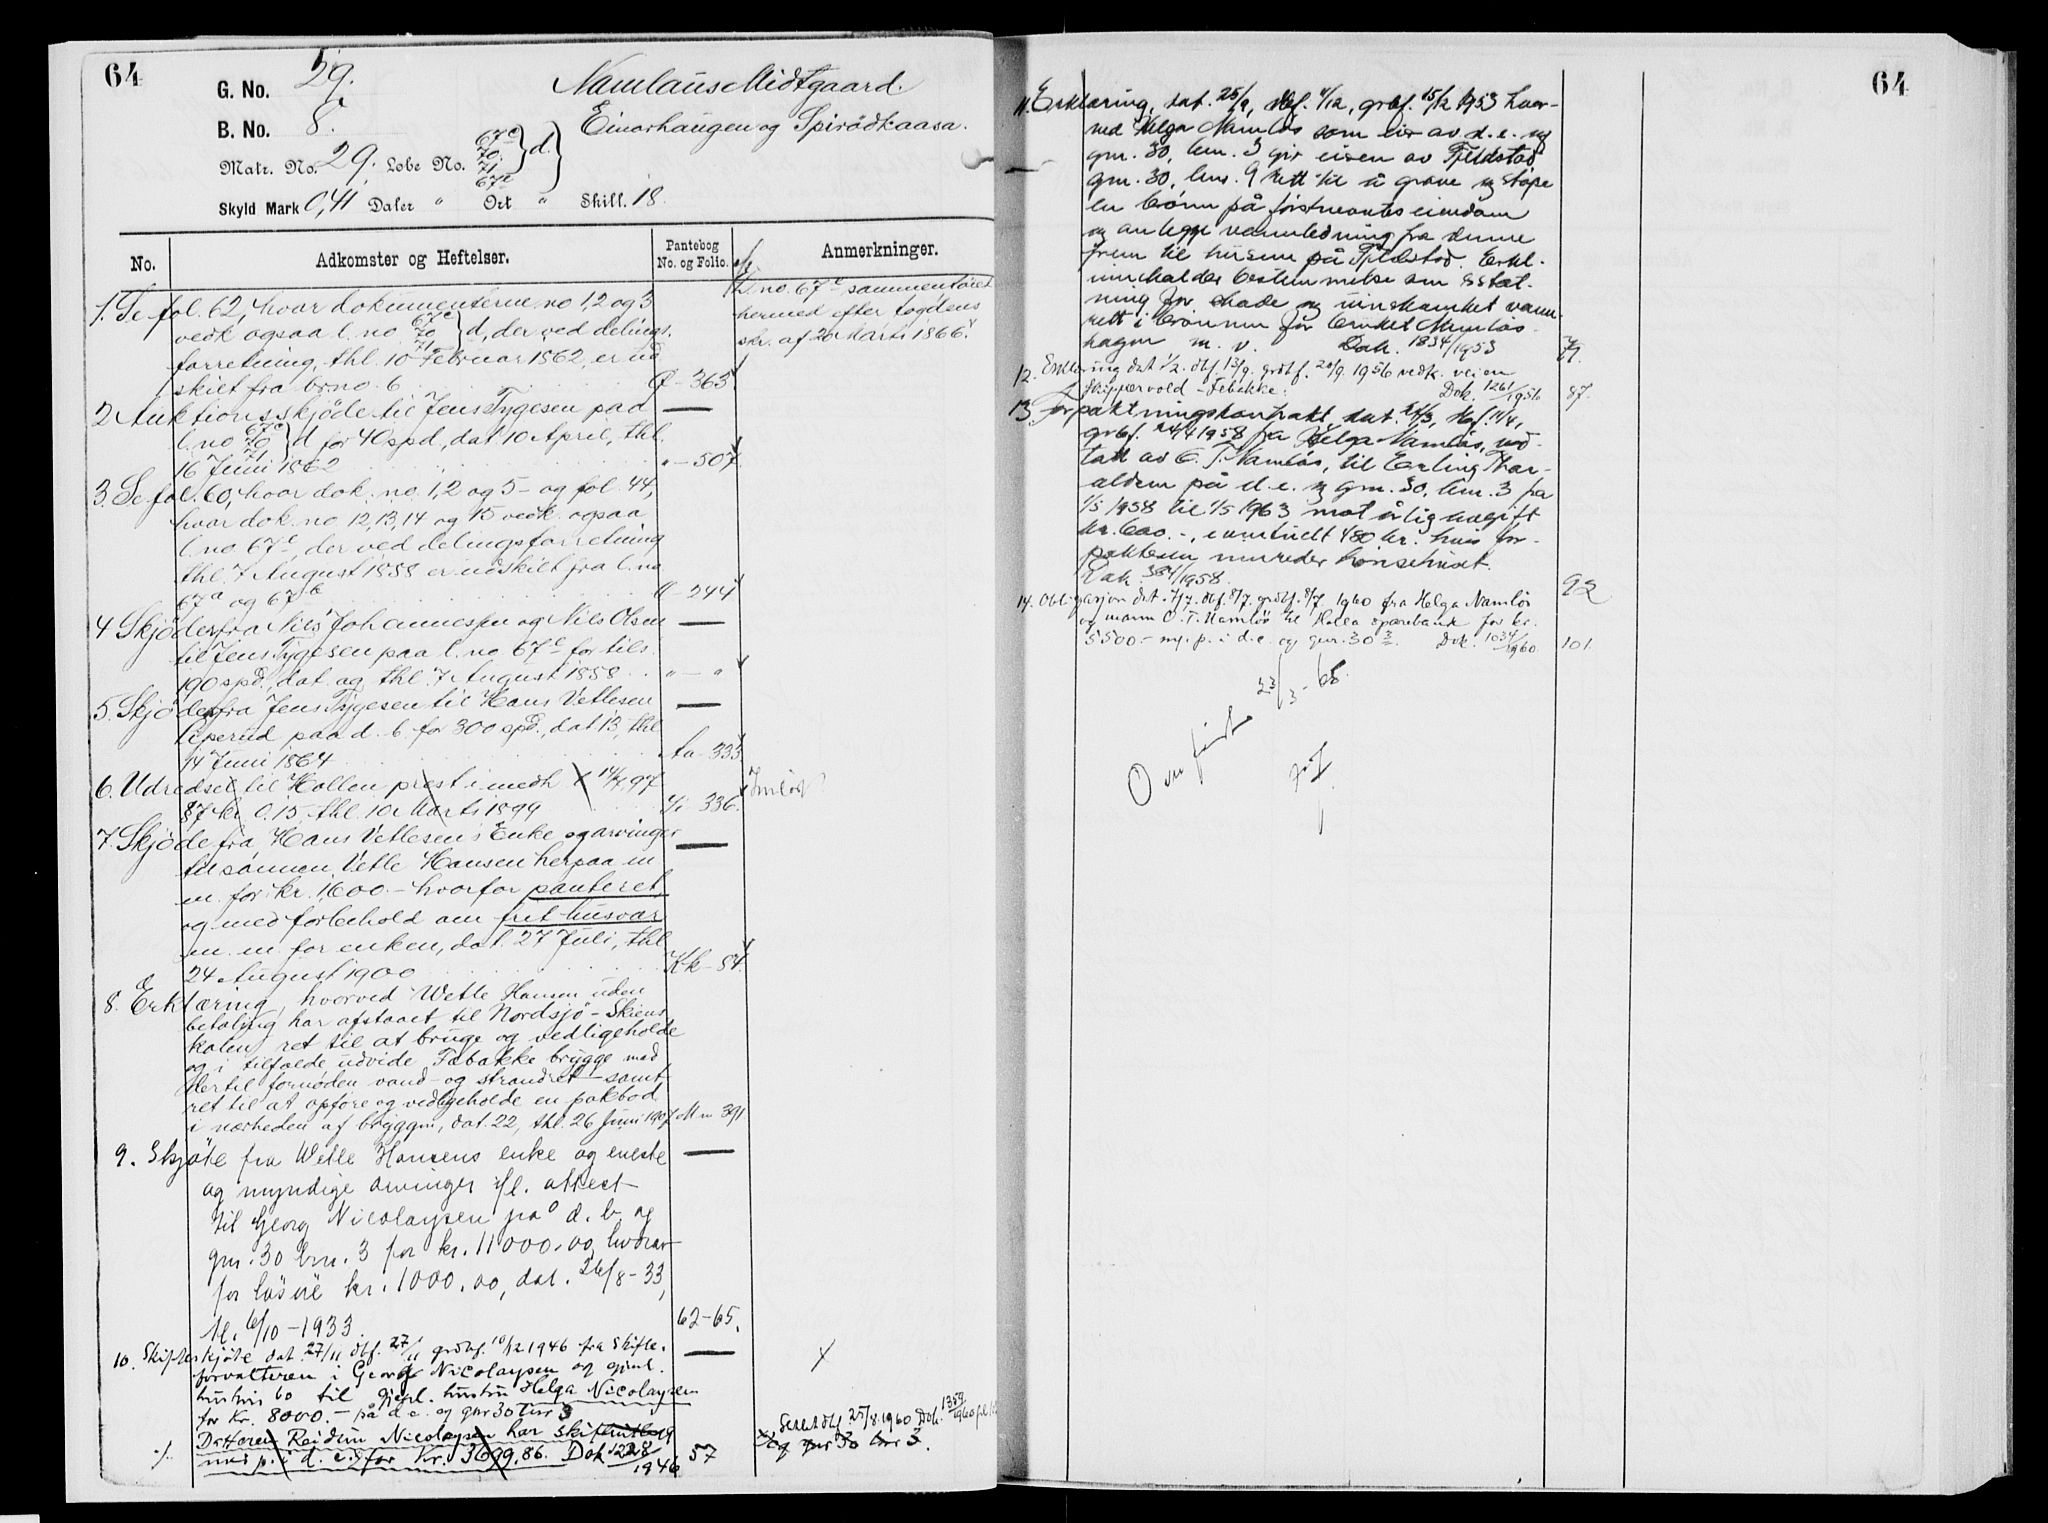 64
G. No. 29.
Namlaus Midtgaard.
B. No. 8.
Einarhaugen og Spirödkaasa.
Matr. No. 29. Løbe No. 67c 70 71 67e } d. }
Skyld Mark 0,41 Daler " Ort " Skill. 18.
No.
Adkomster og Heftelser.
Pantebog No. og Folio.
Anmerkninger.
1. Se fol. 62, hvor dokumenterne no 1, 2 og 3
vedk ogsaa l. no 67c 70 71 } d, der ved delings-
forretning, thl. 10 Februar 1862, er ud
skilt fra brno 6 Q - 363
L. no. 67e sammenföiet
hermed efter løgdens
skr. af 20 Marts 1866.
2 Auktionsskjöde til Jens Tygesen paa
l. no 67c 70 71 } d for 40 spd, dat 10 April, thl.
16 Juni 1862 " - 507
3. Se fol. 60, hvor dok. no. 1, 2 og 5 - og fol. 44,
hvor dok. no 12, 13, 14 og 15 vedk. ogsaa
l. no 67e, der ved delingsforretning
thl. 7 August 1858 er udskilt fra l. no
67a og 67b Q - 244
4 Skjöder fra Nils Johannessen og Nils Olsen
til Jens Tygesen paa l. no 67e for tils.
190 spd., dat. og thl. 7 August 1858 " - "
5. Skjöde fra Jens Tygesen til Hans Vetlesen
Aperud paa d. b for 300 spd., dat 13, thl
14 Juni 1864 Aa - 333
6. Udredsel til Hollen prest i medh l 14/7 97
§7 kr. 0.15, thl. 10 Marts 1899 Ii - 336. Innløst
7. Skjöde fra Hans Vetlesen's Enke og arvinger
til sønnen Vetle Hansen herpaa m
m. for kr. 1600.- hvorfor panteret,
og med forbehold om frit husvær
m. m. for enken, dat. 27 Juli, thl
24 August 1900 Kk - 84.
8. Erklæring, hvorved Wetle Hansen uden
betaling har afstaaet til Nordsjö - Skiens
kalen ret til at bruge og vedligeholde
og i tilfælde udvide Fæbakke brygge med
dertil fornøden vand- og strandret - samt
ret til at opføre og vedligeholde en pakbod
i nærheden af bryggen, dat. 22, thl. 26 Juni 1907 Mm 391
9. Skjöte fra Wetle Hansens enke og eneste
og myndige arvinger ifl. attest
til Georg Nicolaysen på d. b. og
gnr. 30 brn. 3 for kr. 11000.00, hvorav
for løsöre kr. 1000.00, dat. 26/8 - 33,
tl. 6/10 - 1933 62-65.
10. Skifteskjöte dat. 27/11 dbf. 27/11 grdbf. 10/12 1946 fra Skifte-
forvalteren i Georg Nicolaysen og gjenl.
hustrus bo til gjenl. hustru Helga Nicolaysen
for kr. 8000.- på d. e. og gnr 30 bnr 3
Datteren Reidun Nicolaysen har skifteutlegg
med p. i d. e. for Kr. 3699,86. Dok 1228/1946 57
Slettet dbf 25/8 1960 Dok. 1359/1960
og gnr 30 bnr 3.
64
11. Erklæring, dat. 25/9, dbf. 4/12, grbf. 15/12 1953 hvor-
ved Helga Namløs som eier av d. e. og
gnr. 30, bnr. 3 gir eieren av Fjeldstad
gnr. 30, bnr. 9 rett til å grave og støpe
en brønn på førstnevntes eiendom
og anlegge vannledning fra denne
frem til husene på Fjeldstad. Erkl.
inneholder bestemmelse om erstat-
ning for skade og uinnskrenket vann-
rett i brønnen for bruket Namløs
hagen m. v. Dok. 1834/1953 71.
12. Erklæring dat 1/2. dbf 13/9. grdbf. 20/9. 1956 vedk. veien
Skippervold - Febakke. Dok. 1261/1956 87.
13. Forpaktningskontrakt, dat. 24/3, dbf. 11/4,
grbf. 24/4 1958 fra Helga Namløs, ved-
tatt av O. T. Namløs, til Erling Thor-
aldsen på d. e. og gnr. 30, bnr. 3 fra
1/5 1958 til 1/5 1963 mot årlig avgift
kr. 600.-, eventuelt 480 kr. hvis for-
pakteren innreder hønsehuset.
Dok. 364/1958. 92
14. Obligasjon dat. 7/7. dbf. 8/7. grdbf. 8/7. 1960 fra Helga Namløs
og mann O. T. Namløs til Holla sparebank for kr.
5500.- m. p. i d. e. og gnr. 30 3. Dok. 1034/1960. 101
Overført 23/3 - 65.